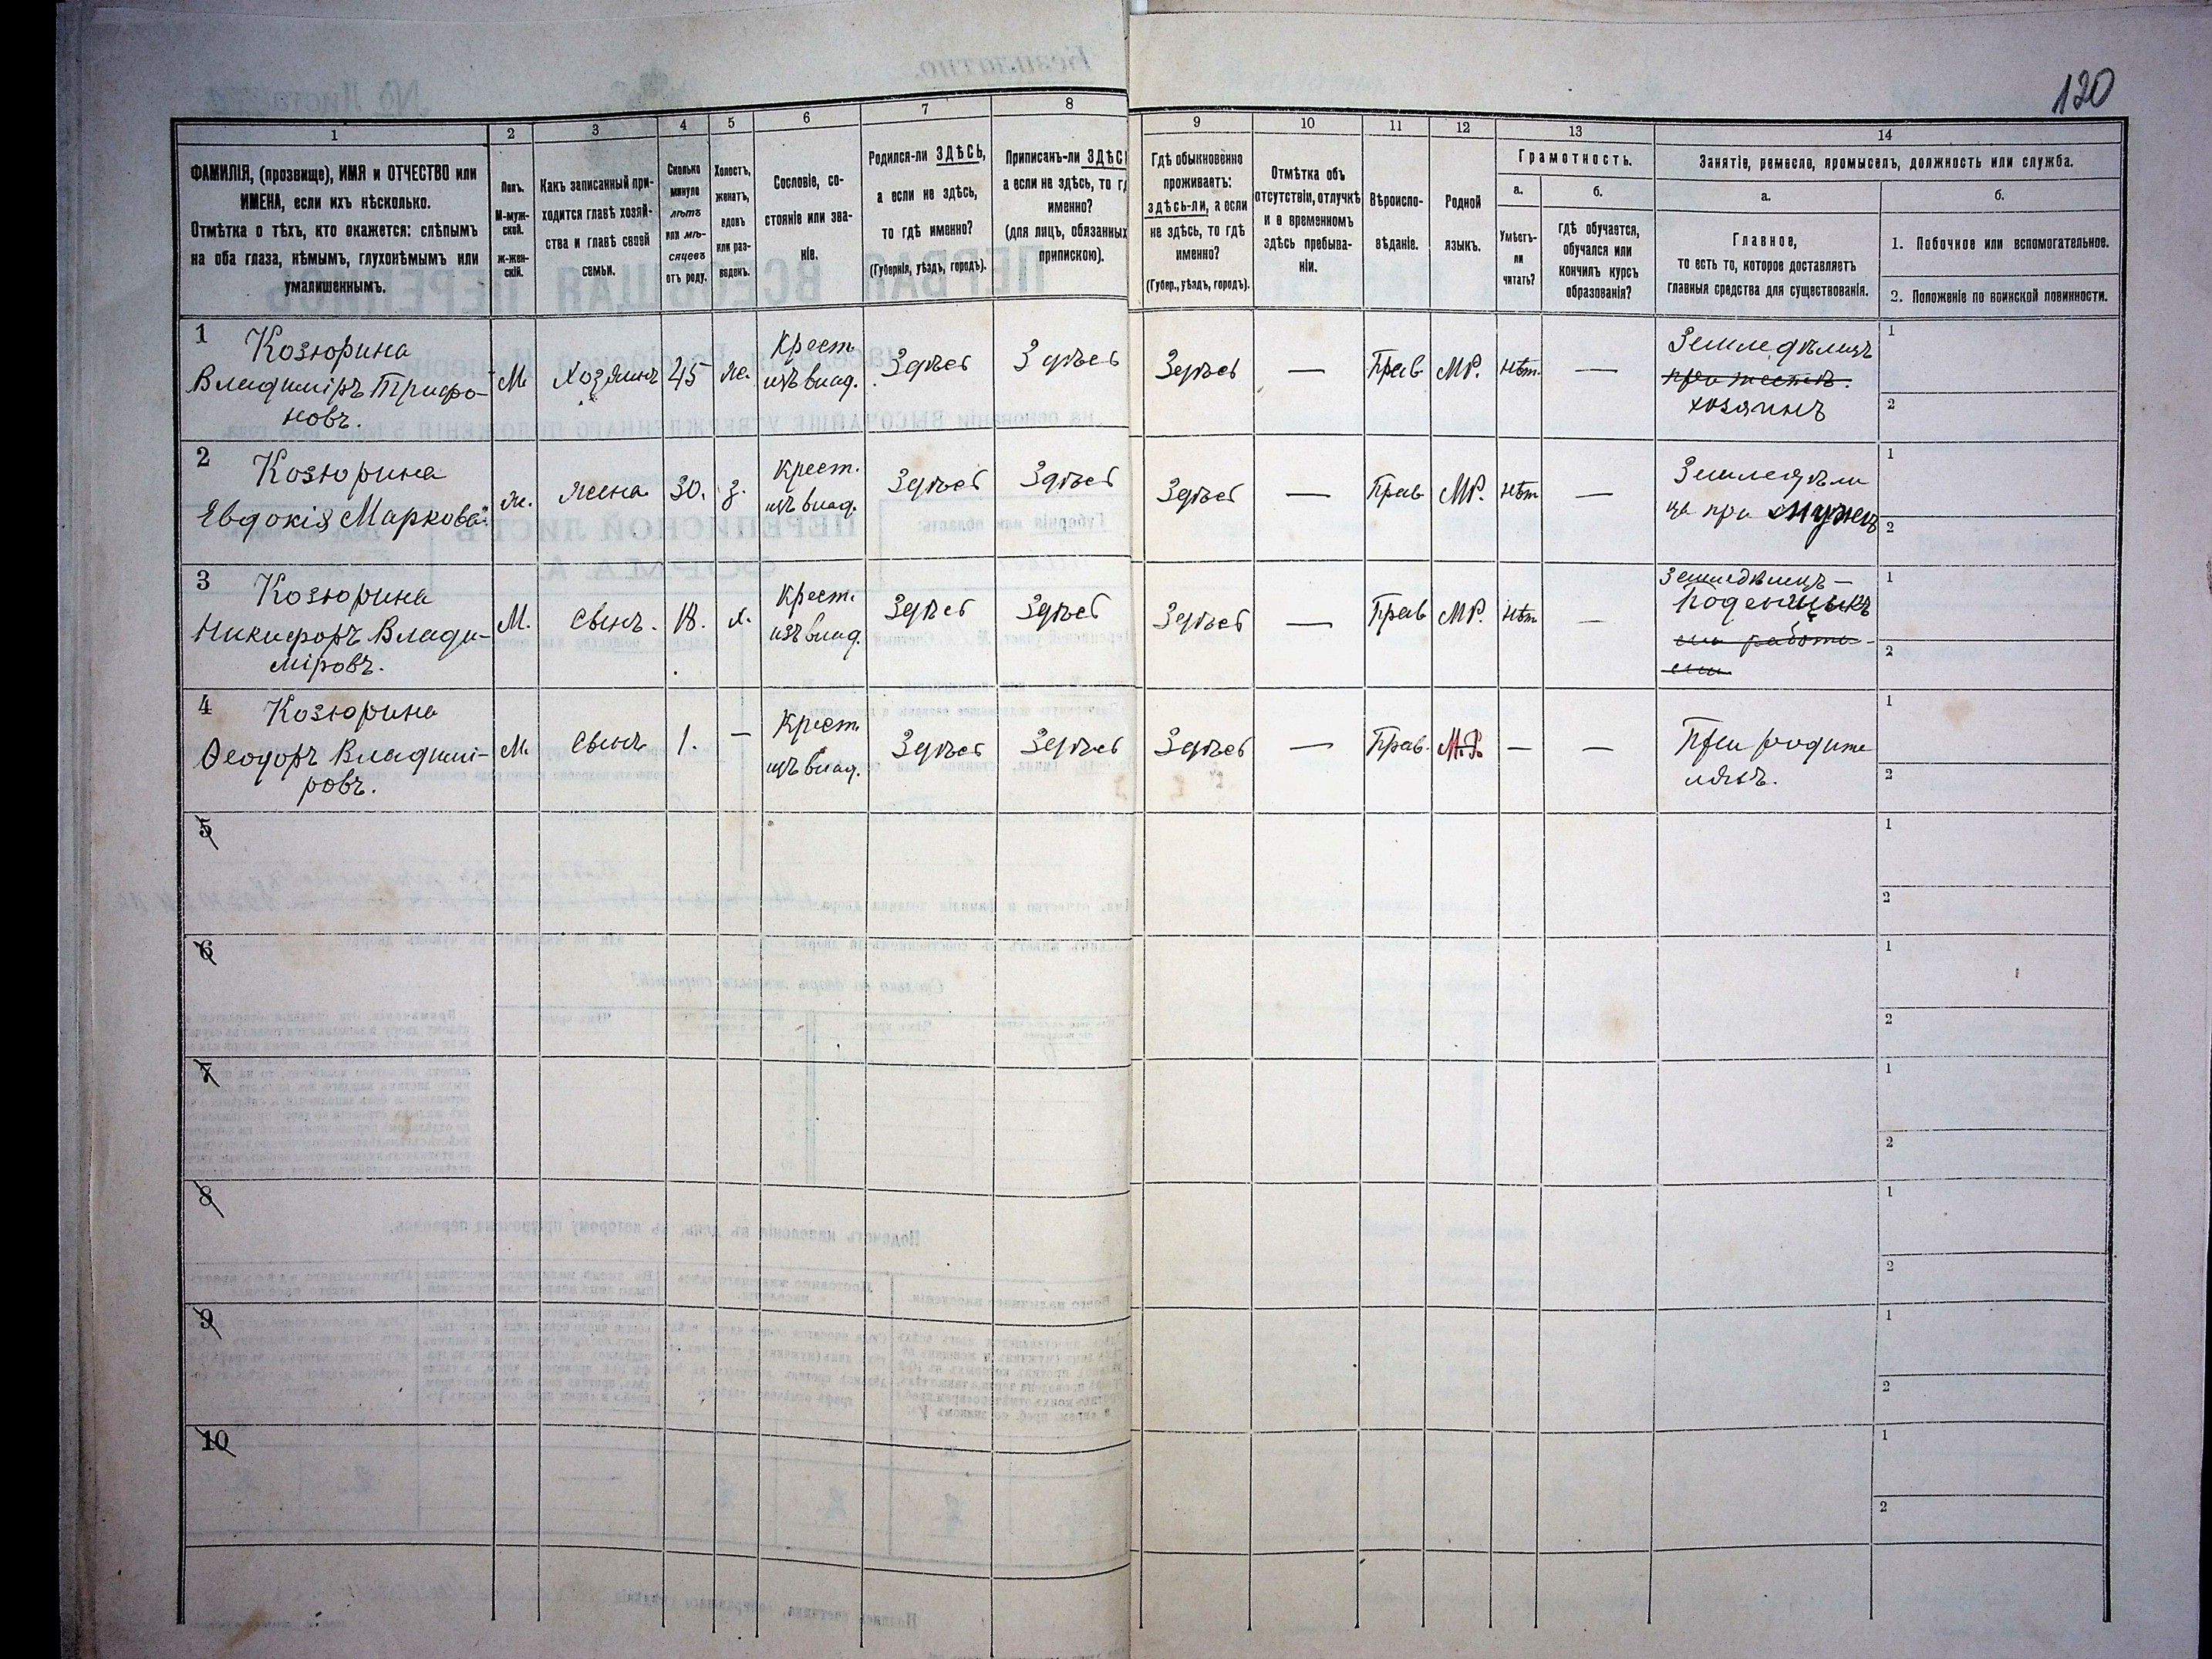 120
1
2
3
4
5
6
7
8
9
10
11
12
13
14
ФАМИЛІЯ, (прозвище), ИМЯ и ОТЧЕСТВО или
ИМЕНА, если ихъ нѣсколько.
Отмѣтка о тѣхъ, кто окажется: слѣпымъ
на оба глаза, нѣмымъ, глухонѣмымъ или
умалишеннымъ.
Полъ.
М-муж-
ской.
ж-жен-
скій.
Какъ записанный при-
ходится главѣ хозяй-
ства и главѣ своей
семьи.
Сколько
минуло
лѣтъ
или мѣ-
сяцевъ
отъ роду.
Холостъ,
женатъ,
вдовъ
или раз-
веденъ.
Сословіе, со-
стояніе или зва-
ніе.
Родился-ли ЗДѢСЬ,
а если не здѣсь,
то гдѣ именно?
(Губернія, уѣздъ, городъ).
Приписанъ-ли ЗДѢС
а если не здѣсь, то гд
именно?
(для лицъ, обязанныхъ
припискою).
Гдѣ обыкновенно
проживаетъ:
здѣсь-ли, а если
не здѣсь, то гдѣ
именно?
(Губер., уѣздъ, городъ).
Отмѣтка объ
отсутствіи, отлучкѣ
и о временномъ
здѣсь пребыва-
ніи.
Вѣроиспо-
вѣданіе.
Родной
языкъ.
Грамотность.
а.
б.
Умѣетъ-
ли
читать?
гдѣ обучается,
обучался или
кончилъ курсъ
образованія?
Занятіе, ремесло, промыселъ, должность или служба.
а.
б.
Главное,
то есть то, которое доставляетъ
главныя средства для существованія.
1. Побочное или вспомогательное.
2. Положеніе по воинской повинности.
1
Козюрина
Владиміръ Трифо-
новъ.
М.
Хозяинъ
45
ж.
Крест.
изъ влад.
Здѣсь
Здѣсь
Здѣсь
—
Прав.
МР.
нѣт.
—
Земледѣлецъ
хозяинъ
1
2
2
Козюрина
Евдокія Маркова.
ж.
жена
30.
з.
Крест.
изъ влад.
Здѣсь
Здѣсь
Здѣсь
—
Прав
МР.
нѣт
—
Земледѣли
ца при мужѣ
1
2
3
Козюрина
Никифоръ Влади-
міровъ.
М.
Сынъ.
18.
х.
Крест.
изъ влад.
Здѣсь
Здѣсь
Здѣсь
—
Прав
МР.
нѣт
—
Земледѣлецъ —
Поденщикъ
1
2
4
Козюрина
Ѳеодоръ Владимі-
ровъ.
М.
Сынъ
1.
—
Крест.
изъ влад.
Здѣсь
Здѣсь
Здѣсь
—
Прав.
М.Р.
—
—
При родите
ляхъ.
1
2
5
1
2
6
1
2
7
1
2
8
1
2
9
1
2
10
1
2